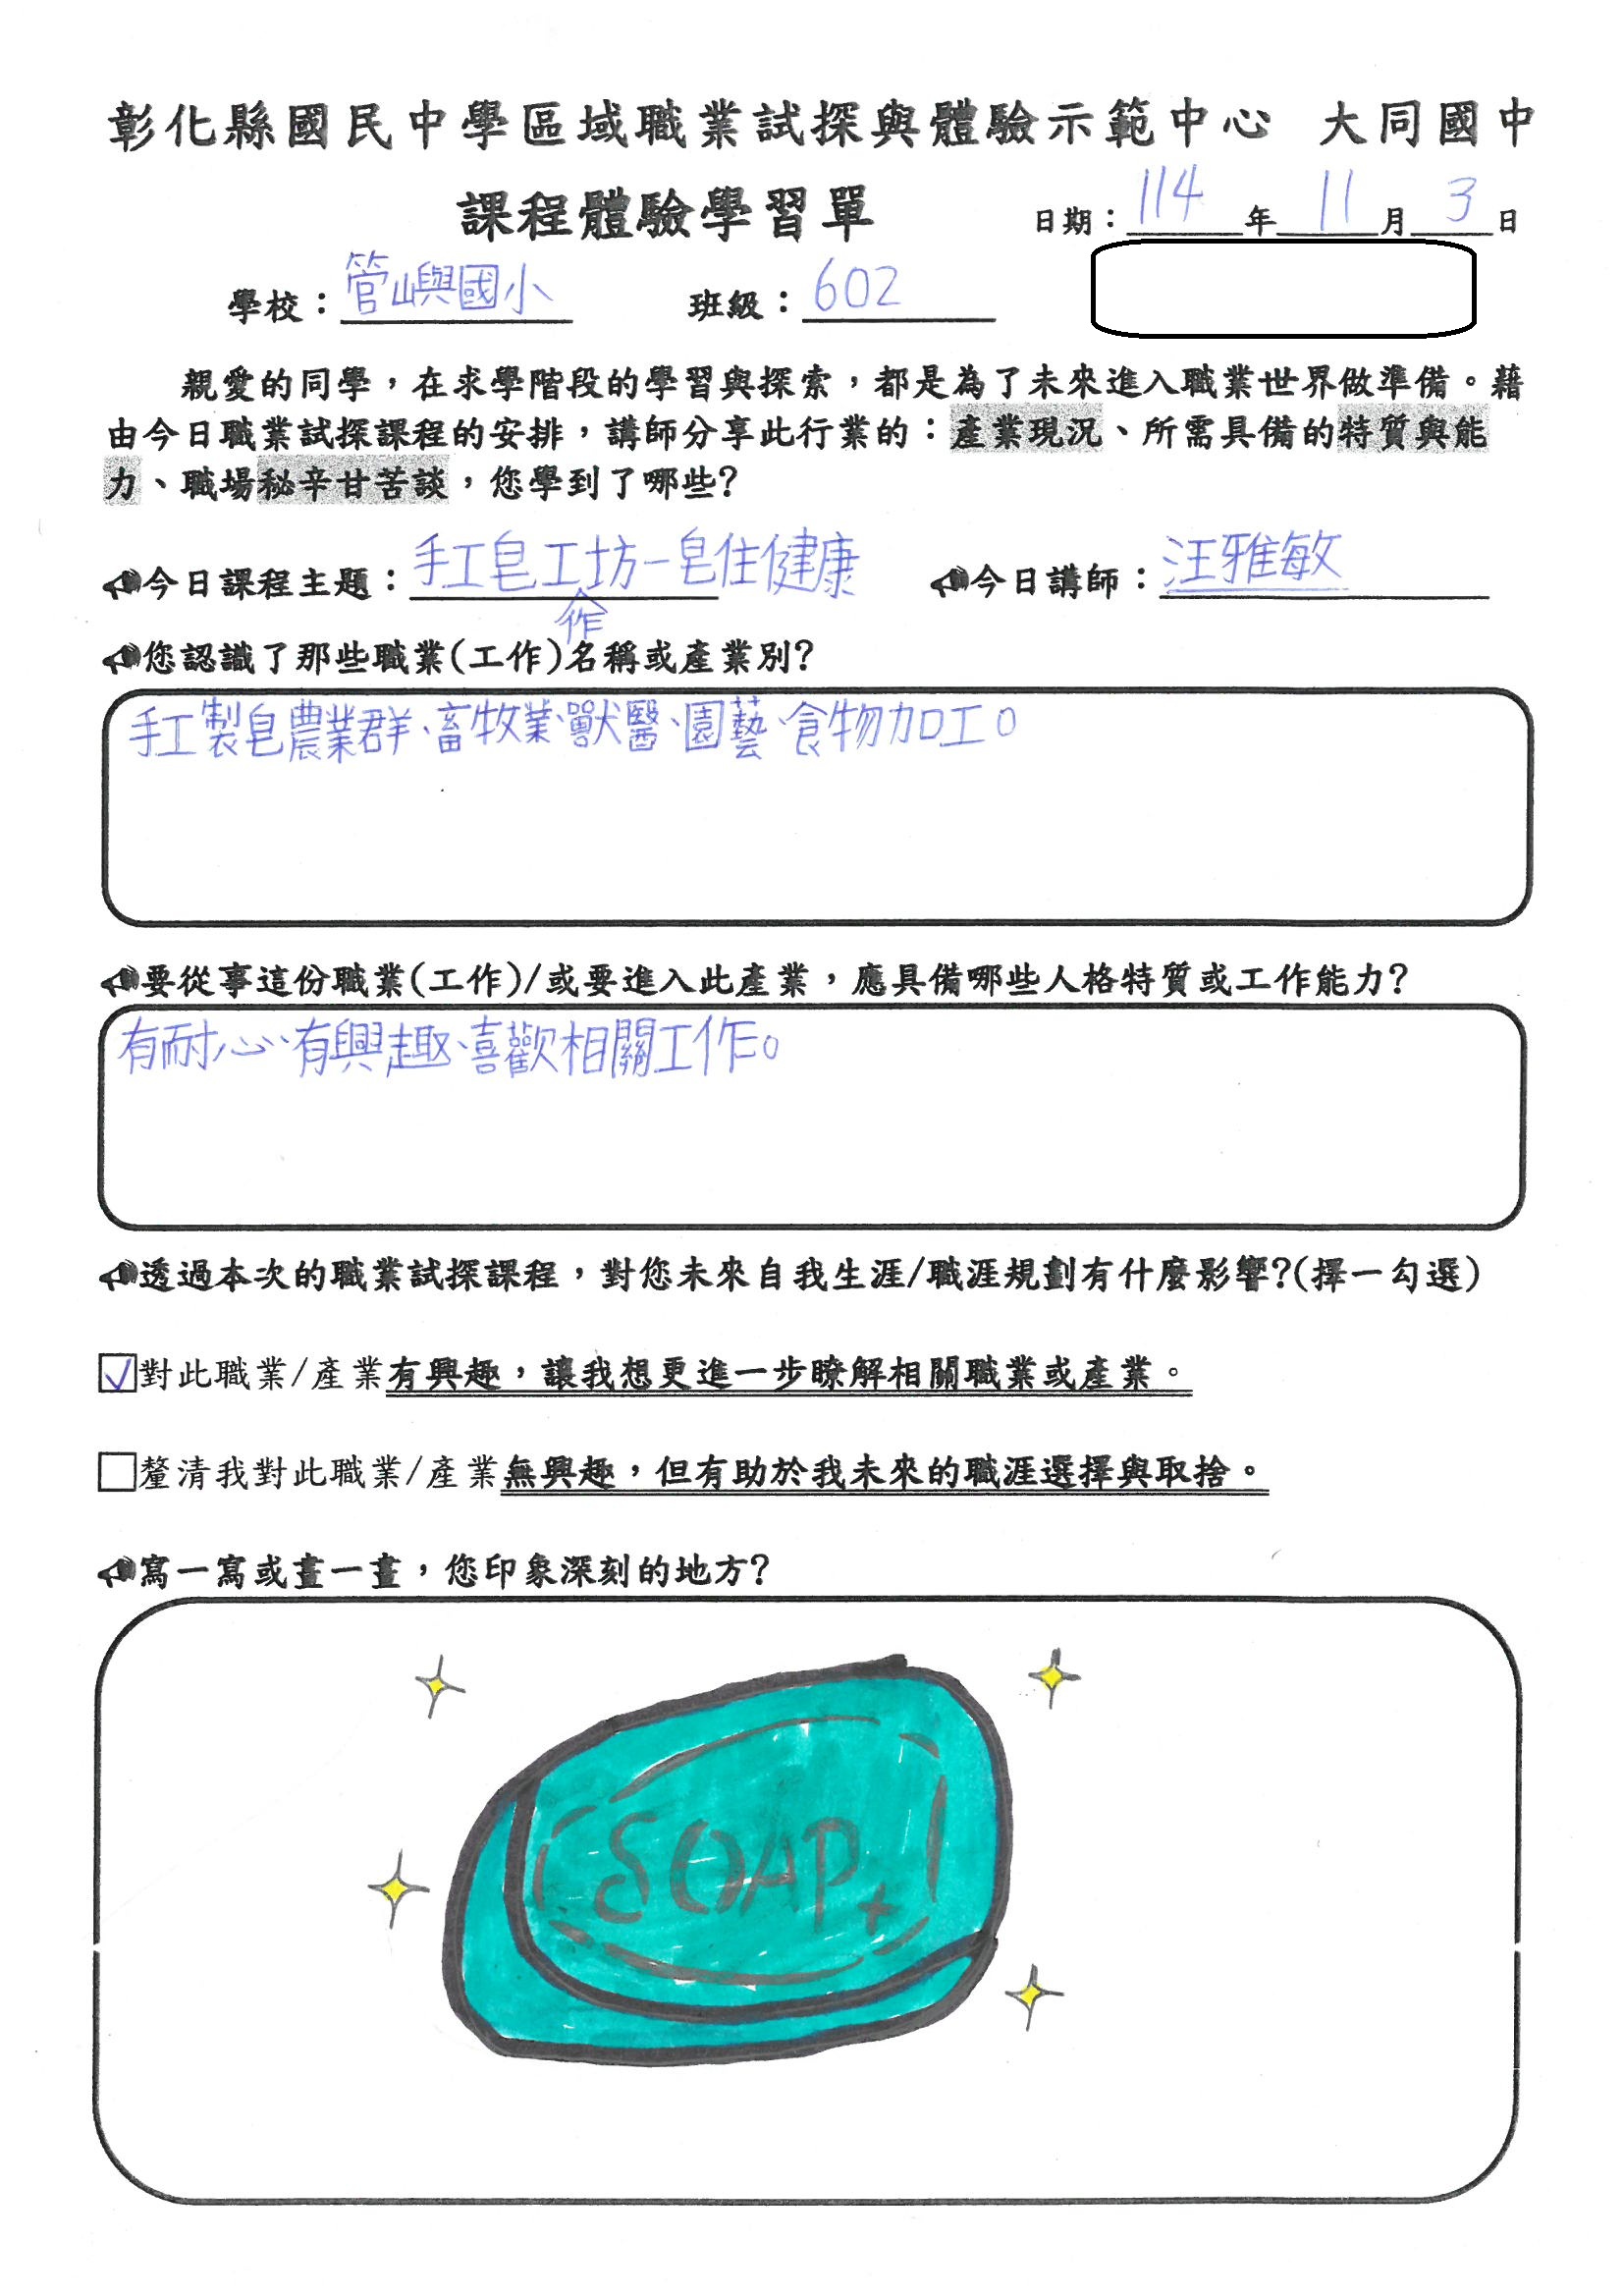 彰化縣國民中學區域職業試探與體驗示範中心 大同國中
課程體驗學習單 日期：114年11月3日
學校：管嶼國小 班級：602
親愛的同學，在求學階段的學習與探索，都是為了未來進入職業世界做準備。藉
由今日職業試探課程的安排，講師分享此行業的：產業現況、所需具備的特質與能
力、職場秘辛甘苦談，您學到了哪些?
今日課程主題：手工皂工作坊-皂住健康 今日講師：汪雅敏
您認識了那些職業(工作)名稱或產業別?
手工製皂農業群、畜牧業、獸醫、園藝、食物加工。
要從事這份職業(工作)/或要進入此產業，應具備哪些人格特質或工作能力?
有耐心、有興趣、喜歡相關工作。
透過本次的職業試探課程，對您未來自我生涯/職涯規劃有什麼影響?(擇一勾選)
☑對此職業/產業有興趣，讓我想更進一步瞭解相關職業或產業。
□釐清我對此職業/產業無興趣，但有助於我未來的職涯選擇與取捨。
寫一寫或畫一畫，您印象深刻的地方?
SOAP